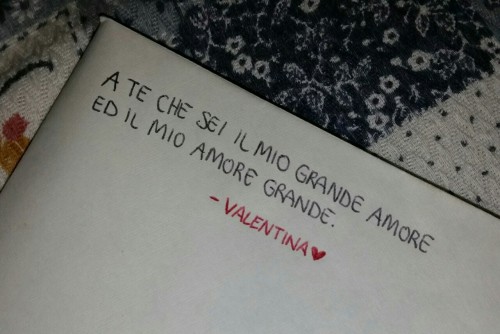 A TE CHE SEI IL MIO GRANDE AMORE
ED IL MIO AMORE GRANDE.
- VALENTINA♥